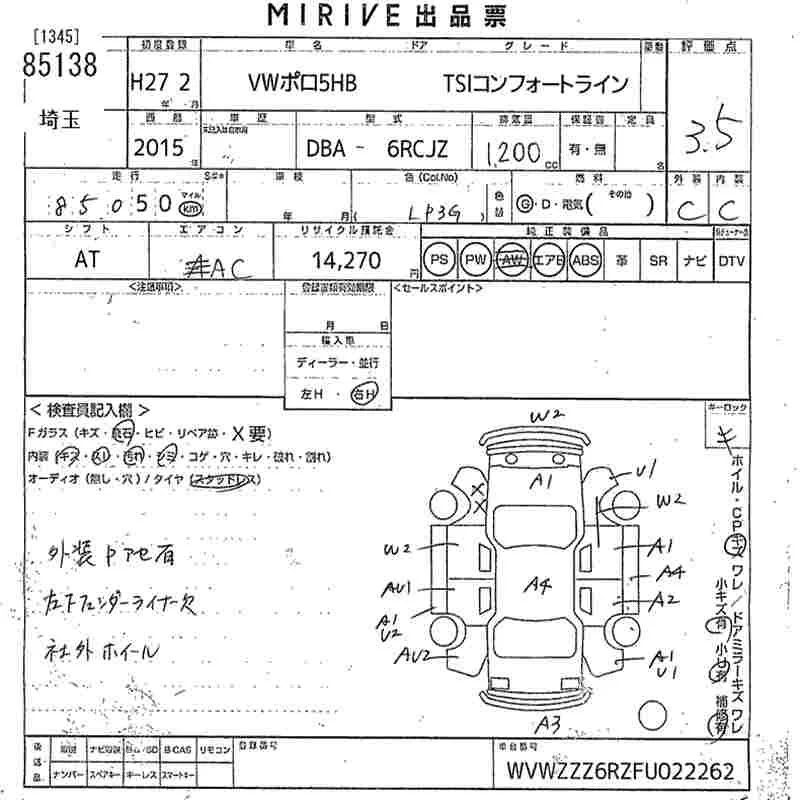 MIRIVE 出品票
[1345]
85138
埼玉
初度登録 車名 ドア グレード 評価点
H27 2 VWポロ5HB TSIコンフォートライン
年 月
3.5
西暦 車歴 型式 排気量 保証書 定員
2015 年 DBA - 6RCJZ 1,200 CC 有・無 名
走行 車検 色(Col.No) 燃料 外装 内装
85050 マイル km 年 月 ( LP3G ) 色替 G・D・電気( その他 ) C C
シフト エアコン リサイクル預託金 純正装備品
AT AC 14,270 円 PS PW AW エアB ABS 革 SR ナビ DTV
<注意事項> 登録書類有効期限 <セールスポイント>
月 日
輸入車
ディーラー・並行
左H ・ 右H
<検査員記入欄>
キーロック
キ
Fガラス(キズ・飛石・ヒビ・リペア跡・X要)
内装(キズ・スレ・汚れ・シミ・コゲ・穴・キレ・破れ・割れ)
オーディオ(隠し・穴)/タイヤ(スタッドレス)
外装Pアセ有
左Fフェンダーライナー欠
社外ホイール
W2
A1
U1
W2
W2
A1
A4
A4
AU1
A2
A1
U2
AU2
A1
U1
A3
ホイル・CPキズ ワレ/ドアミラーキズ ワレ
小キズ有 小凹有 補修有
後送品 ナビ取説 B-CAS リモコン 登録番号 車台番号
ナンバー スペアキー キーレス スマートキー
WVWZZZ6RZFU022262